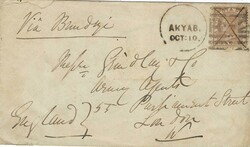 Via Brindisi
AKYAB.
OCT: 10.
Messrs Grindlay & Co
Army Agents
55 Parliament Street
London
England